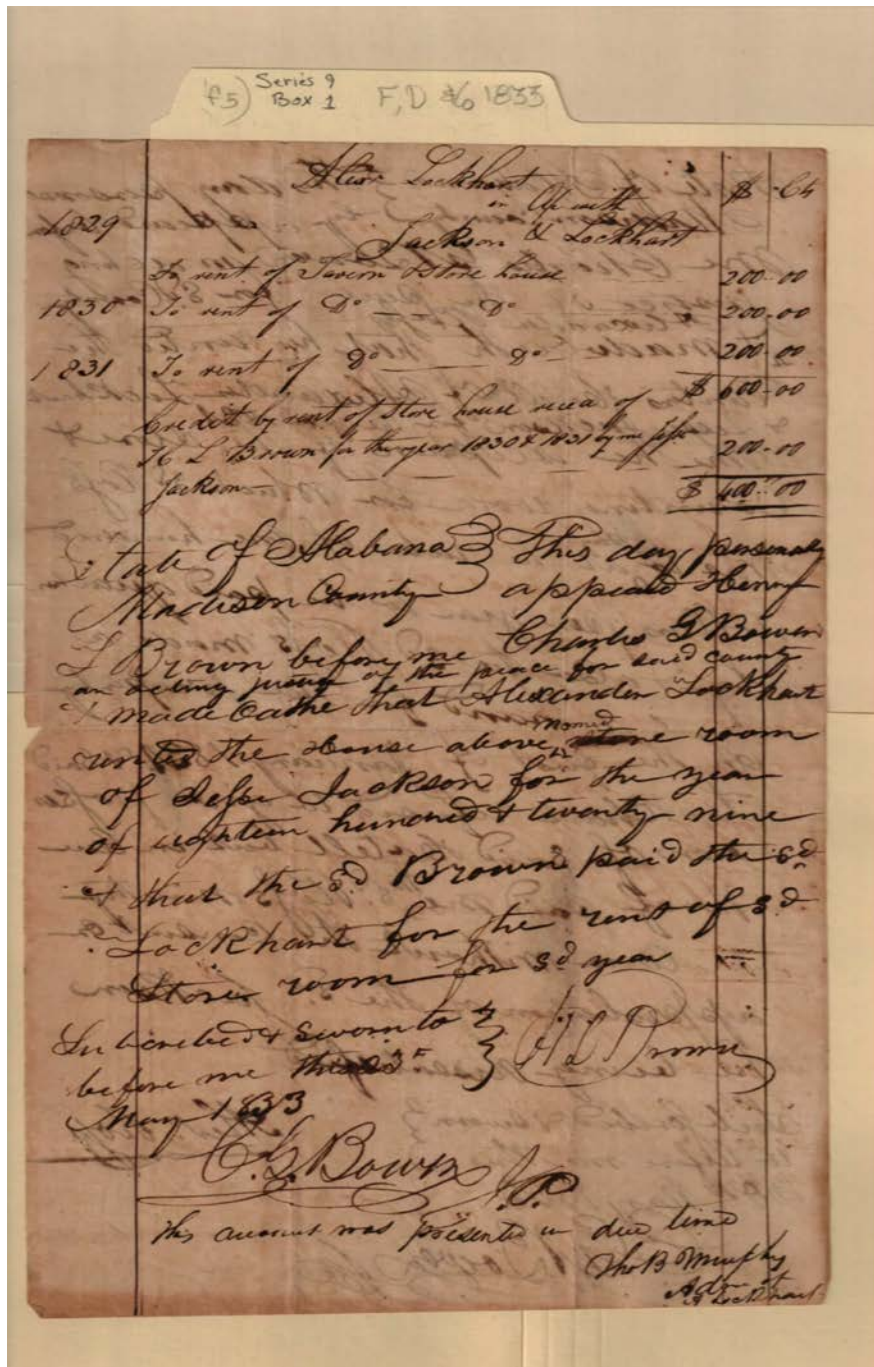 f5) Series 9
Box 1
F,D 1833
Alexr Lockhart $ Cts
in a/c with
1829
Jackson & Lockhart
To rent of Tavern & Store house 200-00
1830 To rent of Do — — Do 200-00
1831 To rent of Do — Do — 200-00
$ 600-00
Credit by rent of Store house recd of
H L Brown for the year 1830 & 1831 by me Jesse 200-00
Jackson $ 400-00
State of Alabama } This day personaly
Madison County } appeard Henry
L Brown before me Charles G Bowen
an acting justice of the peace for said county
& made Oathe that Alexander Lockhart
rented the House above named store room
of Jesse Jackson for the year
of eighteen hundred & twenty nine
& that the sd Brown paid the sd
Lockhart for the rent of sd
Store room for sd year
Subscribed & Sworn to } H L Brown
before me this 23d }
May 1833
C. G. Bowen J.P.
this account was presented in due time
Tho B Murphy
Adm of
A Lockhart